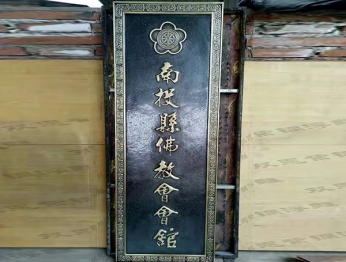 南投縣佛教會會館